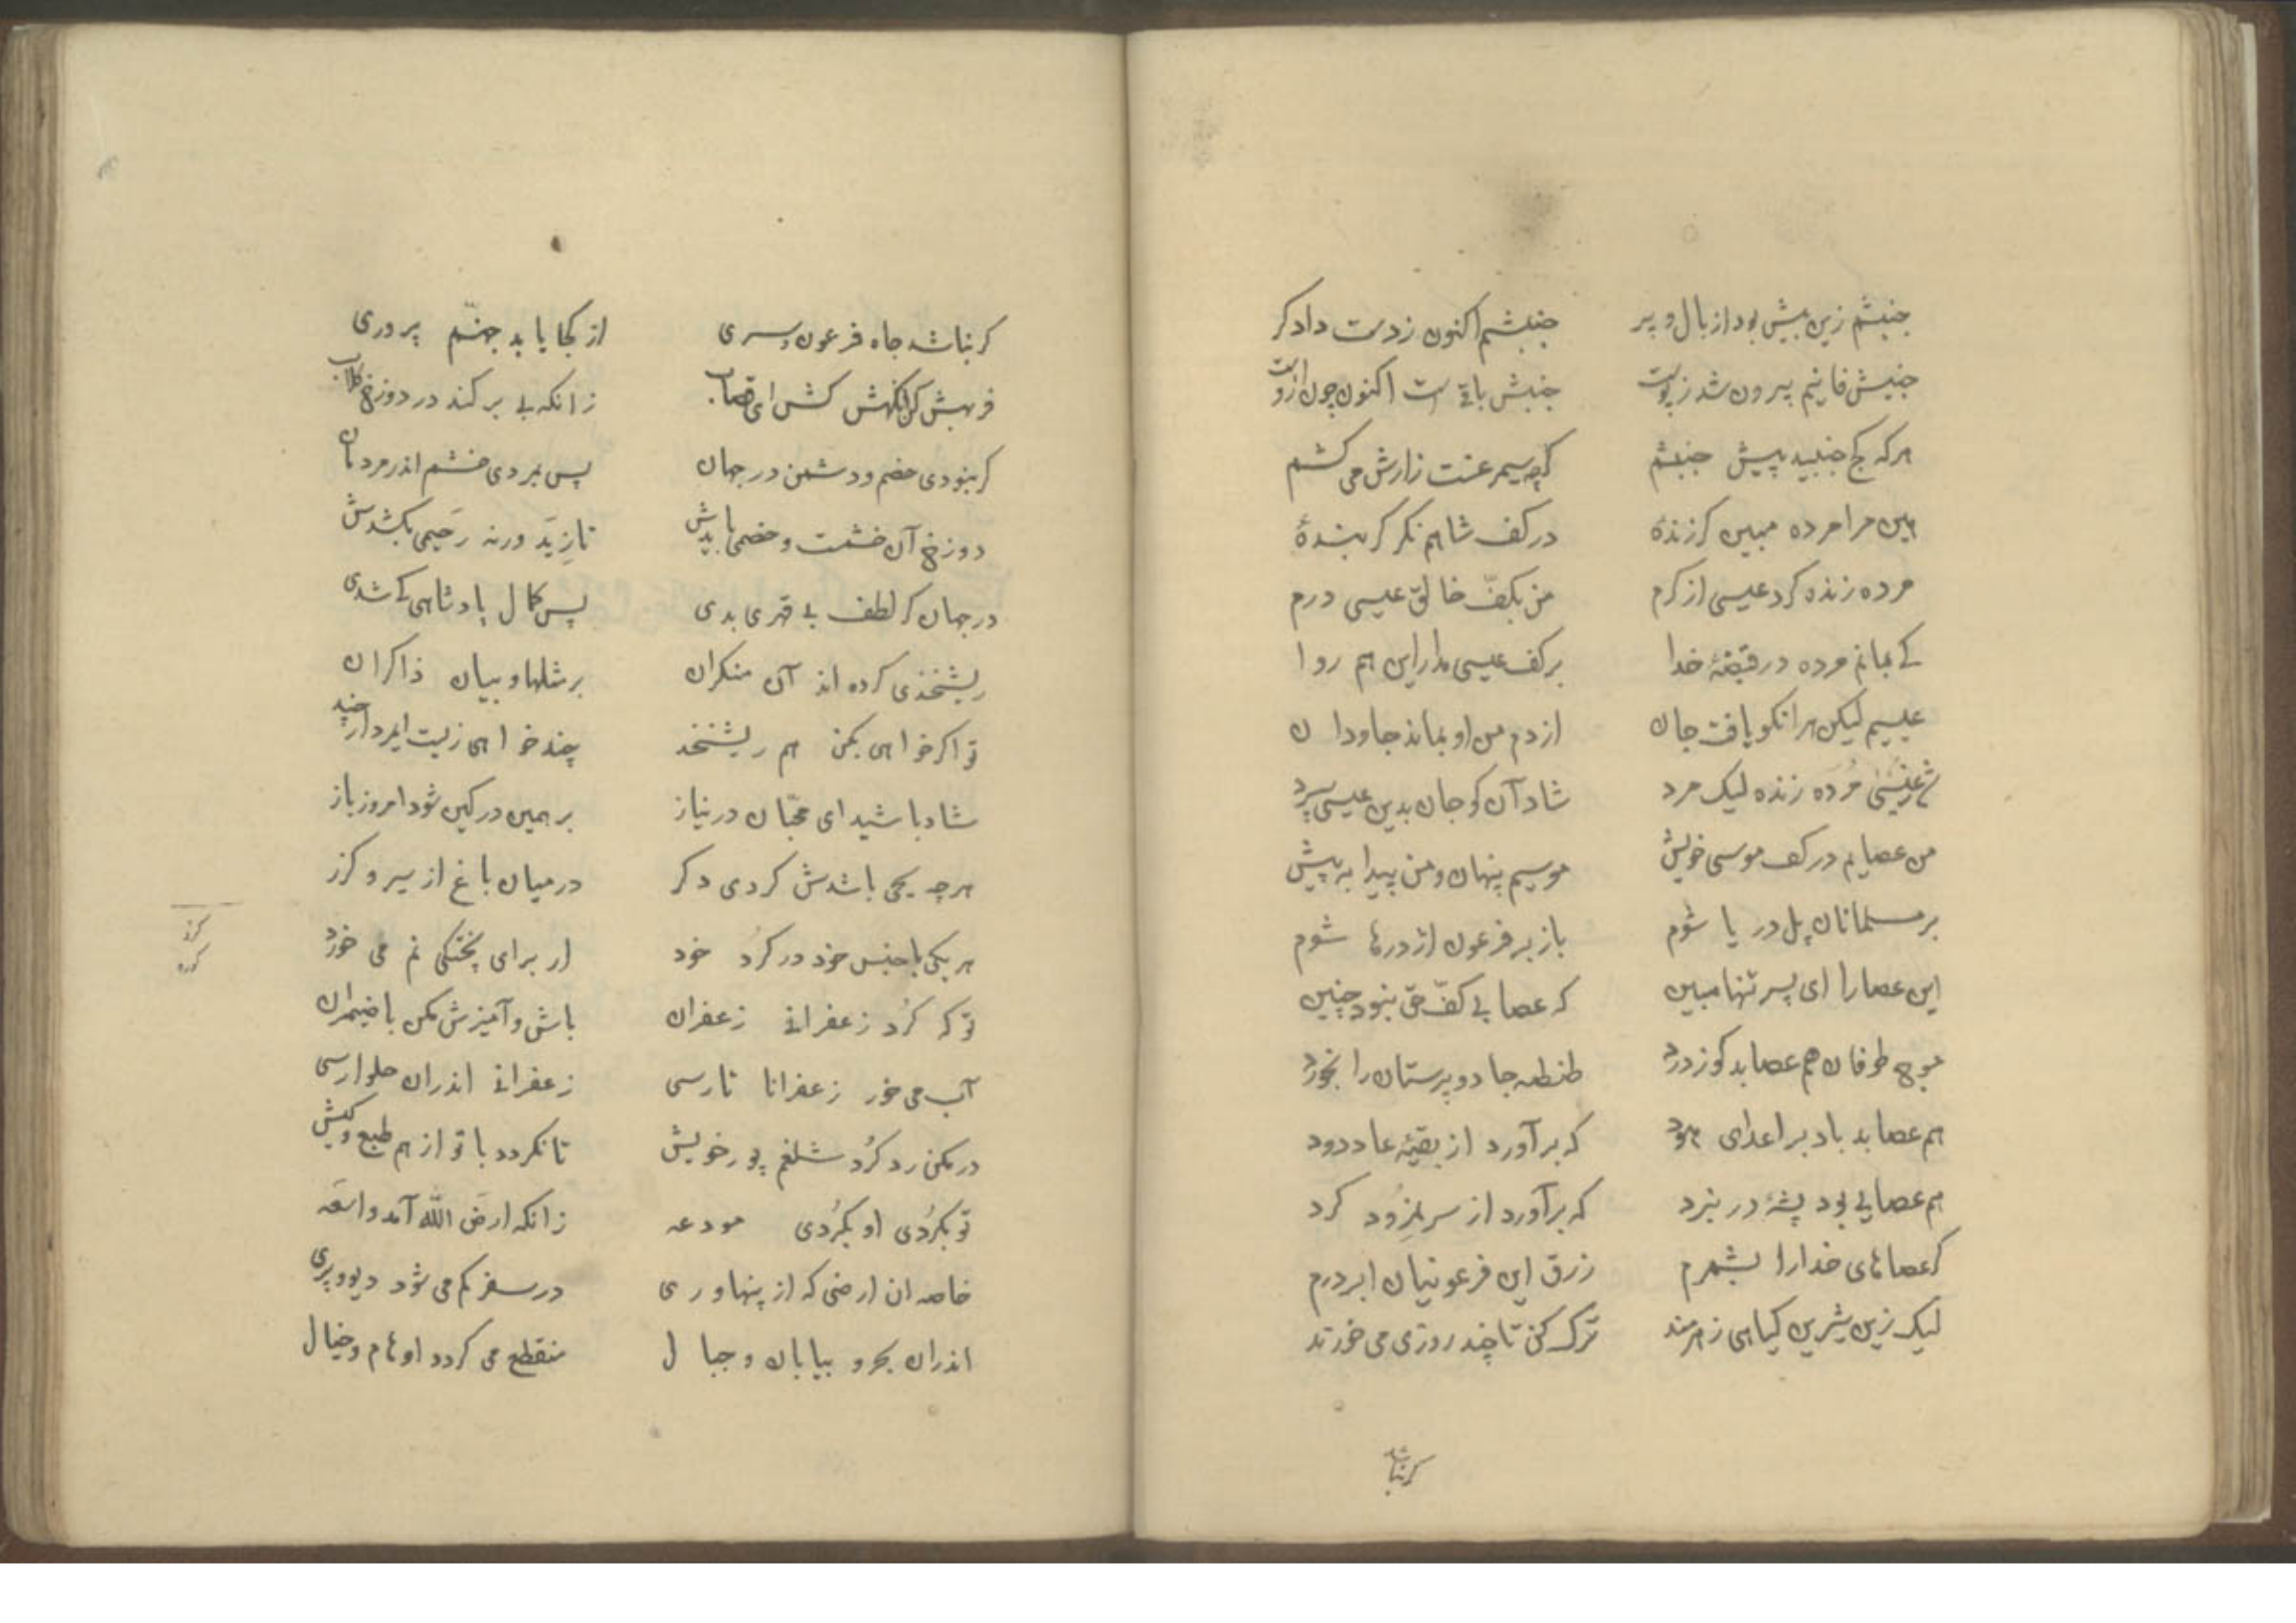 جنبشم زین پیش بود از بال و پر جنبشم اکنون ز دست دادکر
جنبش فانیم بیرون شد ز پوست جنبش باقیست اکنون چون ازوست
هرکه کج جنبید پیش جنبشم کرچه سیمرغست زارش می کشم
هین مرا مرده مبین کر زندهٔ در کف شاهم نکر کر بندهٔ
مرده زنده کرد عیسی از کرم من بکفّ خالق عیسی درم
کے بمانم مرده در قبضهٔ خدا بر کف عیسی مدار این هم روا
عیسیم لیکن هر انکو یافت جان از دم من او بماند جاودان
شد ز عیسیٰ مُرده زنده لیک مرد شاد آن کو جان بدین عیسی سپرد
من عصایم در کف موسی خویش موسیم پنهان و من پیدا به پیش
بر مسلمانان پل دریا شوم باز بر فرعون اژدرها شوم
این عصا را ای پسر تنها مبین که عصا بے کفّ حق نبود چنین
موج طوفان هم عصا بد کو ز درد طنطنه جادو پرستان را بخورد
هم عصا بد باد بر اعدای هود که بر آورد از بقیهٔ عاد دود
هم عصایے بود پشهٔ در نبرد که برآورد از سر نمرُود کرد
کر عصاهای خدا را بشمرم زرق این فرعونیان را بر درم
لیک زین شیرین کیاهی زهرمند ترک کن تا چند روزی می خورند
کرنباشد
کر نباشد جاه فرعون و سری از کجا یابد جهنّم پروری
فربهش کن آنکهش کش ای قصاب زانکه بے برکند در دوزخ کلاب
کر نبودی خصم و دشمن در جهان پس بمردی خشم اندر مردمان
دوزخ آن خشمست و خصمی بایدش تا زِیَد ورنه رَحیمی بکشدش
در جهان کر لطف بے قهری بدی پس کمال پادشاهی کے شدی
ریشخندی کرده اند آن منکران بر مثلها و بیان ذاکران
تو اکر خواهی بکن هم ریشخند چند خواهی زیست ای مردار چند
شاد باشید ای محبّان در نیاز بر همین در کین شود امروز باز
هرچه یحی باشدش کردی دکر در میان باغ از سیر و کزر
هر یکی با جنس خود در کُرد خود از برای پختکی نم می خورد
تو که کُرد زعفرانے زعفران باش و آمیزش مکن با ضیمران
آب می خور زعفرانا تا رسی زعفرانے اندران حلوا رسی
در مکن در کُرد شلغم پوز خویش تا نکردد با تو او هم طبع و کیش
تو بکُردی او بکُردی مودعه زانکه ارضَ اللّٰه آمد واسعَه
خاصه ان ارضی که از پهناوری در سفر کم می شود دیو و پری
اندران بحر و بیابان و جبال منقطع می کردد اوهام و خیال